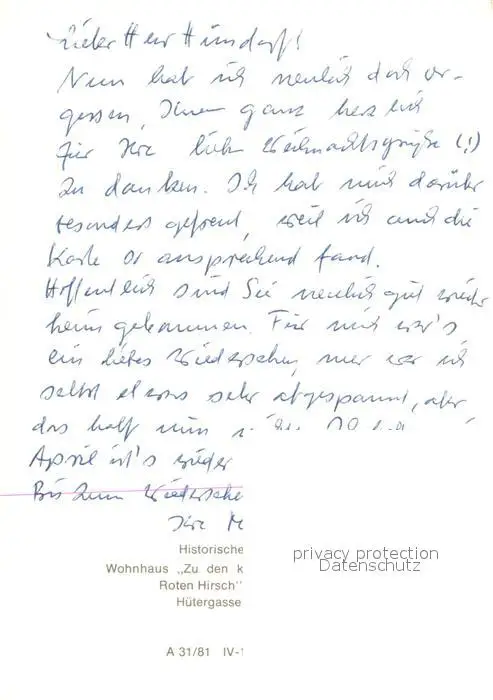 Lieber Herr Hunsdorf!
Nun hab ich neulich doch ver-
gessen, Ihnen ganz herzlich
für Ihre lieben Weihnachtsgrüße (!)
zu danken. Ich hab mich darüber
besonders gefreut, weil ich auch die
Karte so ansprechend fand.
Hoffentlich sind Sie neulich gut wieder
heim gekommen. Für mich war's
ein liebes Wiedersehen, nur war ich
selbst etwas sehr abgespannt, aber
das half nun
April ist's wieder
Bis zum Wiedersehe
Ihre M
Historische
Wohnhaus „Zu den k
Roten Hirsch"
Hütergasse
A 31/81 IV-1
privacy protection
Datenschutz